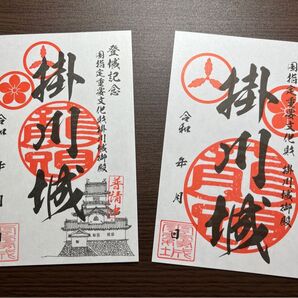 登城記念
国指定重要文化財掛川城御殿
掛川城
令和 年 月
国指定重要文化財掛川城御殿
掛川城
令和 年 月 日